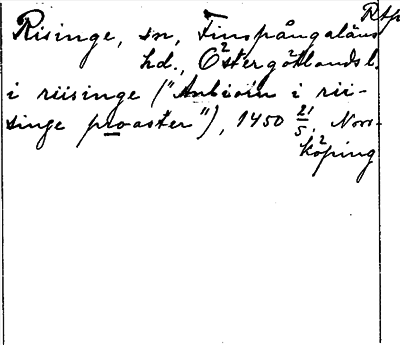 Rtp
Risinge, sn, Finspångaläns
hd., Östergötlands l.
i riisinge ("Anbiorn i rii-
singe proaster"), 1450 21/5, Norr-
köping